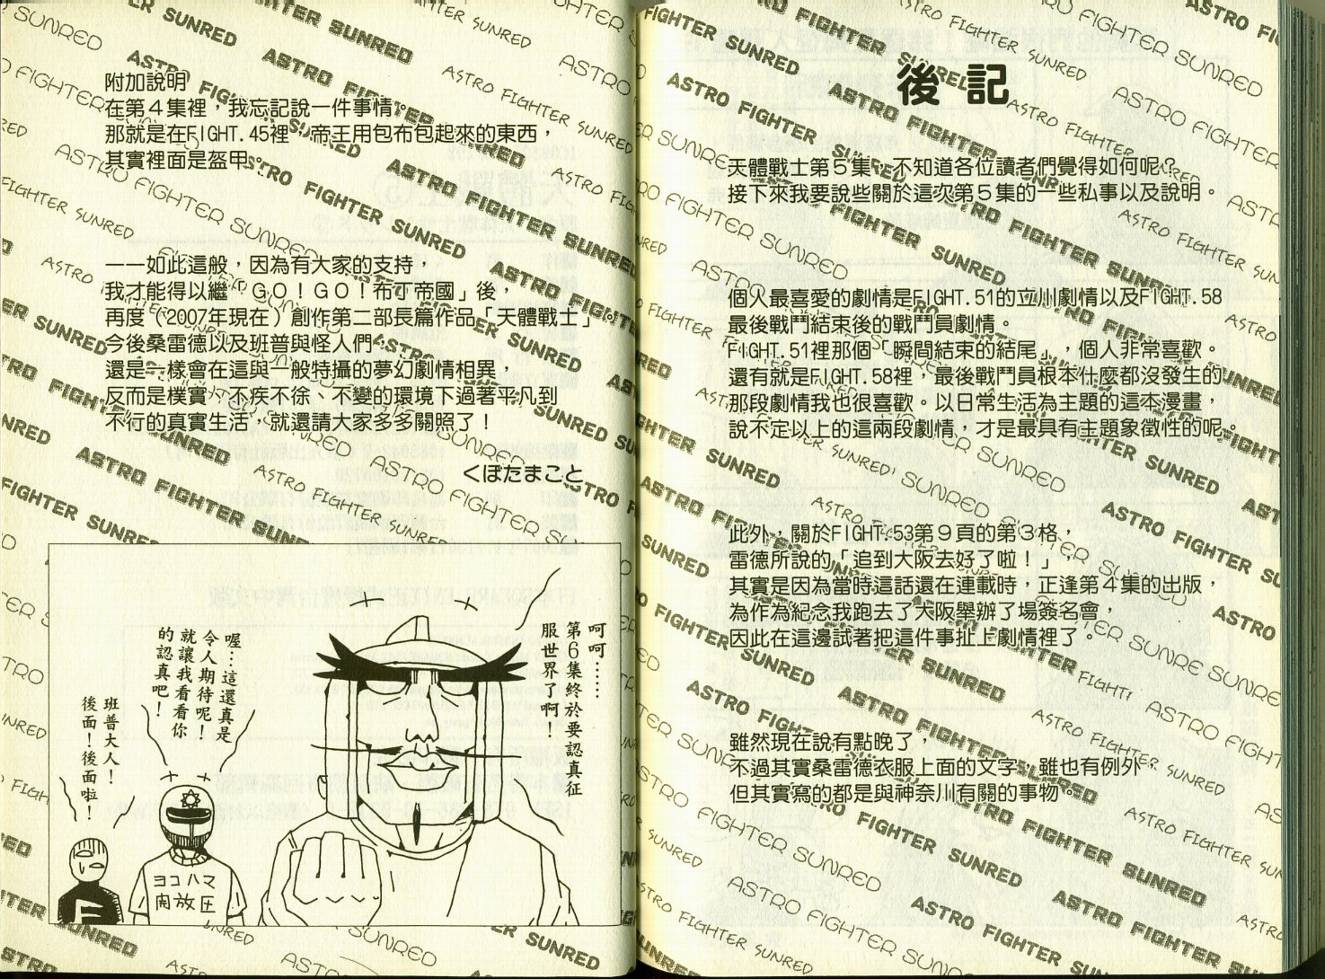 後記
天體戰士第5集、不知道各位讀者們覺得如何呢？
接下來我要說些關於這次第5集的一些私事以及說明。
個人最喜愛的劇情是FIGHT.51的立川劇情以及FIGHT.58
最後戰鬥結束後的戰鬥員劇情。
FIGHT.51裡那個「瞬間結束的結尾」，個人非常喜歡。
還有就是FIGHT.58裡，最後戰鬥員根本什麼都沒發生的
那段劇情我也很喜歡。以日常生活為主題的這本漫畫，
說不定以上的這兩段劇情，才是最具有主題象徵性的呢。
此外，關於FIGHT.53第9頁的第3格，
雷德所說的「追到大阪去好了啦！」，
其實是因為當時這話還在連載時，正逢第4集的出版，
為作為紀念我跑去了大阪舉辦了場簽名會，
因此在這邊試著把這件事扯上劇情裡了。
雖然現在說有點晚了
不過其實桑雷德衣服上面的文字，雖也有例外
但其實寫的都是與神奈川有關的事物
附加說明
在第4集裡，我忘記說一件事情。
那就是在FIGHT.45裡、帝王用包布包起來的東西，
其實裡面是盔甲。
——如此這般，因為有大家的支持，
我才能得以繼「GO！GO！布丁帝國」後，
再度（2007年現在）創作第二部長篇作品「天體戰士」。
今後桑雷德以及班普與怪人們，
還是一樣會在這與一般特攝的夢幻劇情相異，
反而是樸實、不疾不徐、不變的環境下過著平凡到
不行的真實生活，就還請大家多多關照了！
くぼたまこと
呵呵……
第6集終於要認真征
服世界了啊！
喔…這還真是
令人期待呢！
就讓我看看你
的認真吧！
班普大人！
後面！後面啦！
ヨコハマ
開放区
F
ASTRO FIGHTER SUNRED